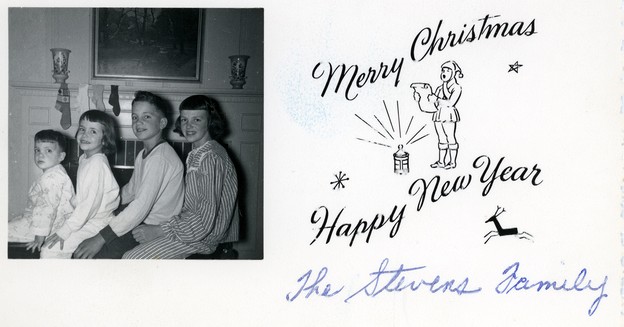 Merry Christmas
Happy New Year
The Stevens Family